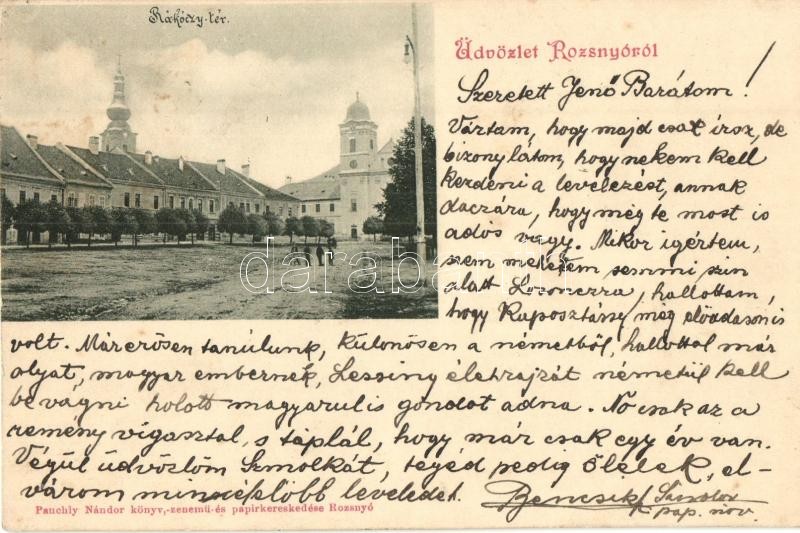 Rákóczy-tér.
Üdvözlet Rozsnyóról
Szeretett Jenő Barátom!
Vártam, hogy majd csak írsz, de
bizony látom, hogy nekem kell
kezdeni a levelezést, annak
daczára, hogy még te most is
adós vagy. Mikor igértem,
nem mehetem semmi szin
alatt Losonczra, hallottam,
hogy még előadáson is
volt. Már erősen tanúlunk, különösen a németből, hallottál már
olyat, magyar embernek, Lessing életrajzát németül kell
bevágni holott magyarul is gondot adna. No csak az a
remény vigasztal, s táplál, hogy már csak egy év van.
Végül üdvözlöm Szmolkát, tégéd pedig ölelek, el-
várom minélőbb leveledet. Bencsik Sándor
pap. növ.
Pauchly Nándor könyv,-zenemű-és papirkereskedése Rozsnyó
darabanth